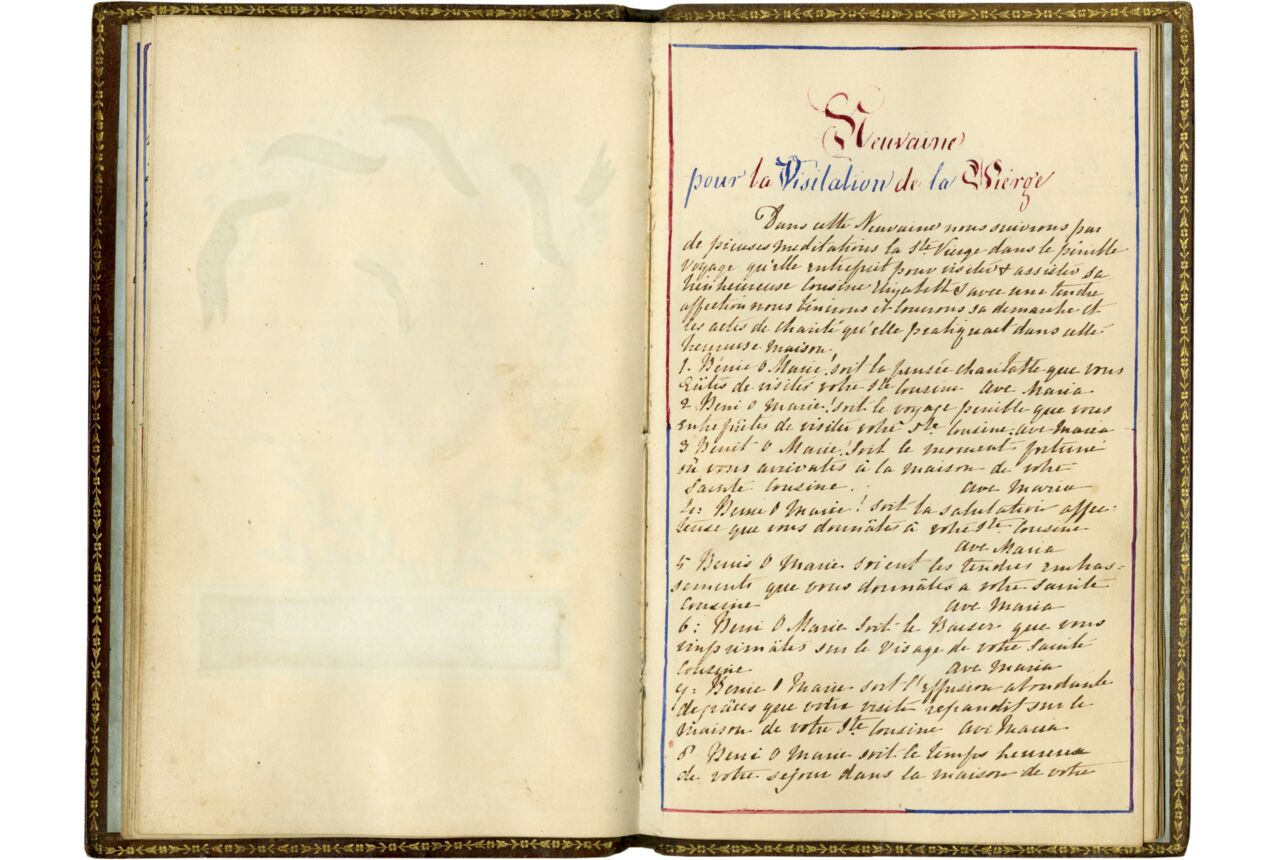 Neuvaine
pour la Visitation de la Vierge
Dans cette Neuvaine nous suivrons par
de pieuses meditations la Ste Vierge dans le pénible
voyage qu'elle entreprit pour visiter & assister sa
bienheureuse Cousine Elizabeth & avec une tendre
affection nous bénirons et louerons sa demarche et
les actes de charité qu'elle pratiquait dans cette
heureuse maison.
1. Bénie O Marie! soit la pensée charitable que vous
eûtes de visiter votre Ste Cousine Ave Maria
2 Beni O Marie! soit le voyage penible que vous
entreprîtes de visiter votre Ste Cousine. ave Maria
3 Benit O Marie! Soit le moment fortuné
où vous arrivates à la maison de votre
Sainte Cousine. Ave Maria
4: Benie O Marie! soit la salutation affec-
teuse que vous donnâtes à votre Ste Cousine
Ave Maria
5 Benis O Marie soient les tendres embras-
sements que vous donnâtes a votre Sainte
Cousine Ave Maria
6: Beni O Marie Soit le Baiser que vous
imprimâtes sur le Visage de votre Sainte
Cousine Ave Maria
7: Benie O Marie soit l'effusion abondante
de grâces que votre visite repandit sur la
maison de votre Ste Cousine Ave Maria
8 Beni O Marie soit le temps heureux
de votre sejour dans la maison de votre